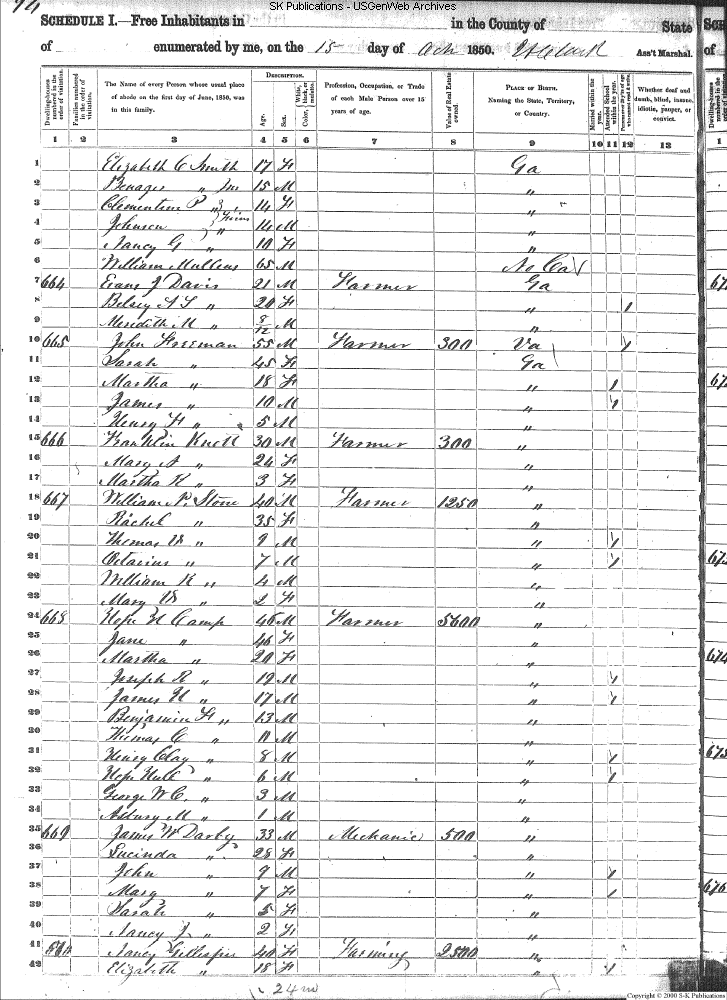 SK Publications - USGenWeb Archives
SCHEDULE I.—Free Inhabitants in in the County of State
of enumerated by me, on the 15 day of Oct 1850. Ass't Marshal.
Dwelling-houses numbered in the order of visitation.
Families numbered in the order of visitation.
The Name of every Person whose usual place of abode on the first day of June, 1850, was in this family.
Description.
Age.
Sex.
White, black, or mulatto.
Color,
Profession, Occupation, or Trade of each Male Person over 15 years of age.
Value of Real Estate owned.
Place of Birth. Naming the State, Territory, or Country.
Married within the year.
Attended School within the year.
Whether deaf and dumb, blind, insane, idiotic, pauper, or convict.
1 2 3 4 5 6 7 8 9 10 11 12 13
1 Elizabeth C Smith 17 F Ga
2 " Jr 15 M "
3 Clementine P " 14 F "
4 Johnson " Twins 14 M "
5 Nancy G " 10 F "
6 William Mullens 65 M No Ca
7 664 Evans J Davis 21 M Farmer Ga
8 Betsey A S " 20 F " 1
9 Meredith M " 8/12 M "
10 665 John Freeman 55 M Farmer 300 Va 1
11 Sarah " 45 F Ga
12 Martha " 18 F " 1
13 James " 10 M " 1
14 Henry F " 5 M "
15 666 Franklin Knett 30 M Farmer 300 "
16 Mary A " 24 F "
17 Martha K " 3 F "
18 667 William P. Stone 40 M Farmer 1250 "
19 Rachel " 35 F "
20 Thomas " 9 M " 1
21 Octavius " 7 M " 1
22 William R " 4 M "
23 Mary " 2 F "
24 668 Hope H Camp 46 M Farmer 5600 "
25 Jane " 46 F "
26 Martha " 20 F "
27 Joseph R " 19 M " 1
28 James H " 17 M " 1
29 Benjamin F " 13 M "
30 Thomas C " 11 M "
31 Henry Clay " 8 M " 1
32 Hope Hull " 6 M " 1
33 George W C. " 3 M "
34 Asbury M " 1 M "
35 669 James W Darby 33 M Mechanic 500 "
36 Lucinda " 28 F "
37 John " 9 M " 1
38 Mary " 7 F " 1
39 Sarah " 5 F "
40 Nancy J " 2 F "
41 Nancy Gillespie 40 F Farming 2500 "
42 Elizabeth " 18 F " 1
24 m
Copyright © 2000 S-K Publications